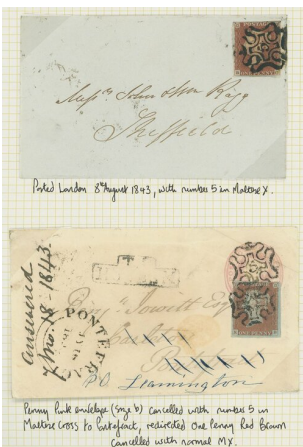 POSTAGE
ONE PENNY
Messrs John & Wm Rigg
Sheffield
Posted London 8th August 1843, with number 5 in Maltese X.
Answered
7 mo. 18 - 1843
PONTEFRAC
Jowitt Esq
Carlton
PO Leamington
Penny Pink envelope (size b) cancelled with number 5 in
Maltese Cross to Pontefract, redirected One Penny Red Brown
cancelled with normal MX.